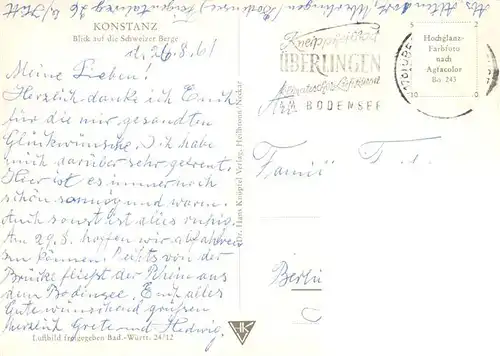 KONSTANZ
Blick auf die Schweizer Berge
d. 26.8.61
Meine Lieben!
Herzlich danke ich Euch
für die mir gesandten
Glückwünsche. Ich habe
mich darüber sehr gefreut.
Hier ist es immer noch
schön sonnig und warm.
Auch sonst ist alles ruhig.
Am 29.8. hoffen wir abfahren
zu können. Rechts von der
Brücke fließt der Rhein aus
dem Bodensee. Euch alles
Gute wünschend grüßen
herzlich Grete und Hedwig.
Luftbild freigegeben Bad.-Württ. 24/12
Hans Knöpfel Verlag, Heilbronn Neckar
HK
Kneippheilbad
ÜBERLINGEN
AM BODENSEE
Hochglanz-
Farbfoto
nach
Agfacolor
Bo 245
Berlin